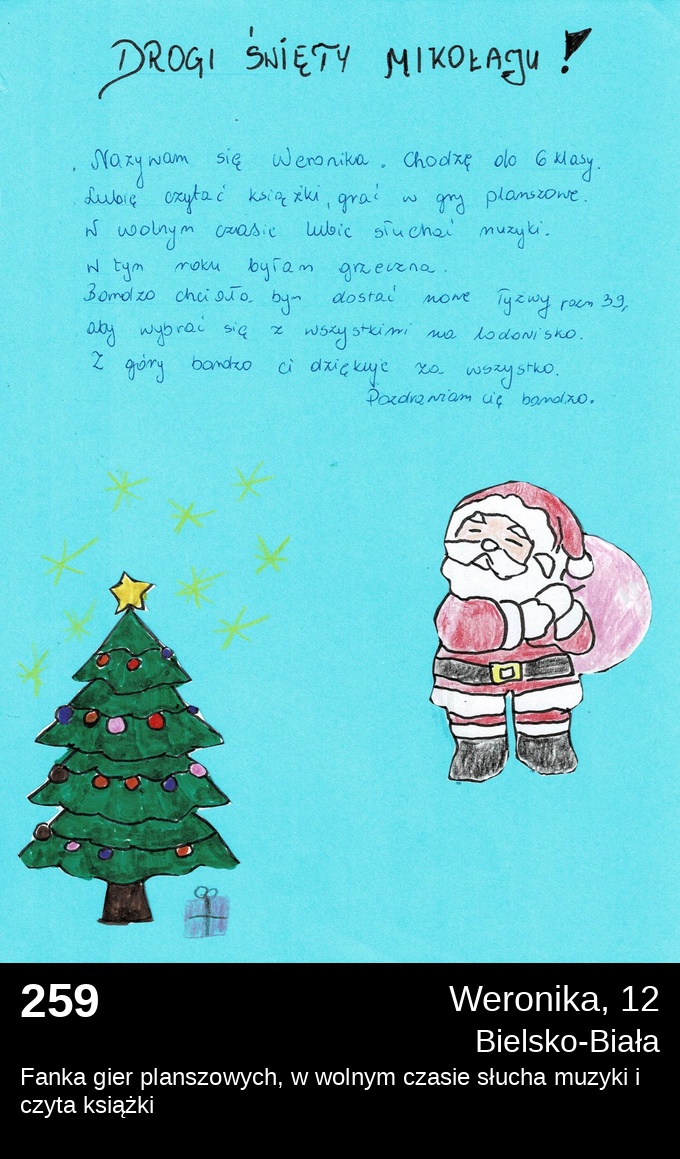 DROGI ŚWIĘTY MIKOŁAJU!
Nazywam się Weronika. Chodzę do 6 klasy.
Lubię czytać książki, grać w gry planszowe.
W wolnym czasie lubię słuchać muzyki.
W tym roku byłam grzeczna.
Bardzo chciała bym dostać nowe łyżwy rozm 39,
aby wybrać się z wszystkimi na lodowisko.
Z góry bardzo ci dziękuję za wszystko.
Pozdrawiam cię bardzo.
259
Weronika, 12
Bielsko-Biała
Fanka gier planszowych, w wolnym czasie słucha muzyki i
czyta książki